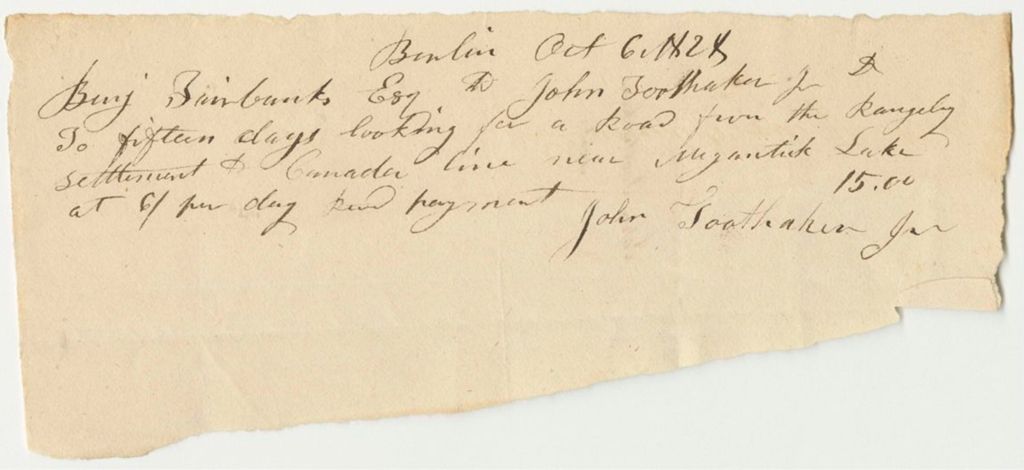 Berlin Oct 6 1828
Benj Fairbanks Esq To John Toothaker Jr Dr
To fifteen days looking for a Road from the Rangeley
settlement to Canada line near Megantick Lake
at 6/ per day Recd payment 15.00
John Toothaker Jur